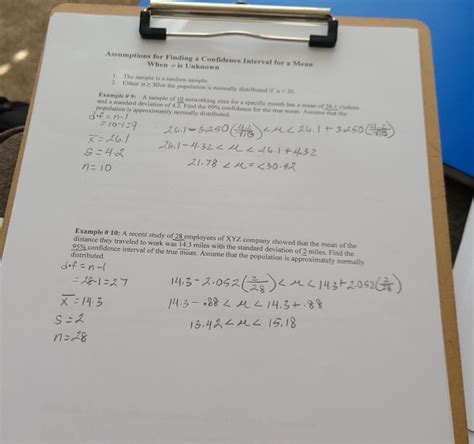 Assumptions for Finding a Confidence Interval for a Mean
When σ is Unknown
1. The sample is a random sample.
2. Either n ≥ 30 or the population is normally distributed if n < 30.
Example # 9: A sample of 10 networking sites for a specific month has a mean of 26.1 visitors
and a standard deviation of 4.2. Find the 99% confidence for the true mean. Assume that the
population is approximately normally distributed.
d.f = n-1
= 10-1=9
x̄ = 26.1
S = 4.2
n = 10
26.1 - 3.250 (4.2/√10) < μ < 26.1 + 3.250 (4.2/√10)
26.1 - 4.32 < μ < 26.1 + 4.32
21.78 < μ = < 30.42
Example # 10: A recent study of 28 employees of XYZ company showed that the mean of the
distance they traveled to work was 14.3 miles with the standard deviation of 2 miles. Find the
95% confidence interval of the true mean. Assume that the population is approximately normally
distributed.
d.f = n-1
= 28-1=27
x̄ = 14.3
S = 2
n = 28
14.3 - 2.052 (2/√28) < μ < 14.3 + 2.052 (2/√28)
14.3 - .88 < μ < 14.3 + .88
13.42 < μ < 15.18